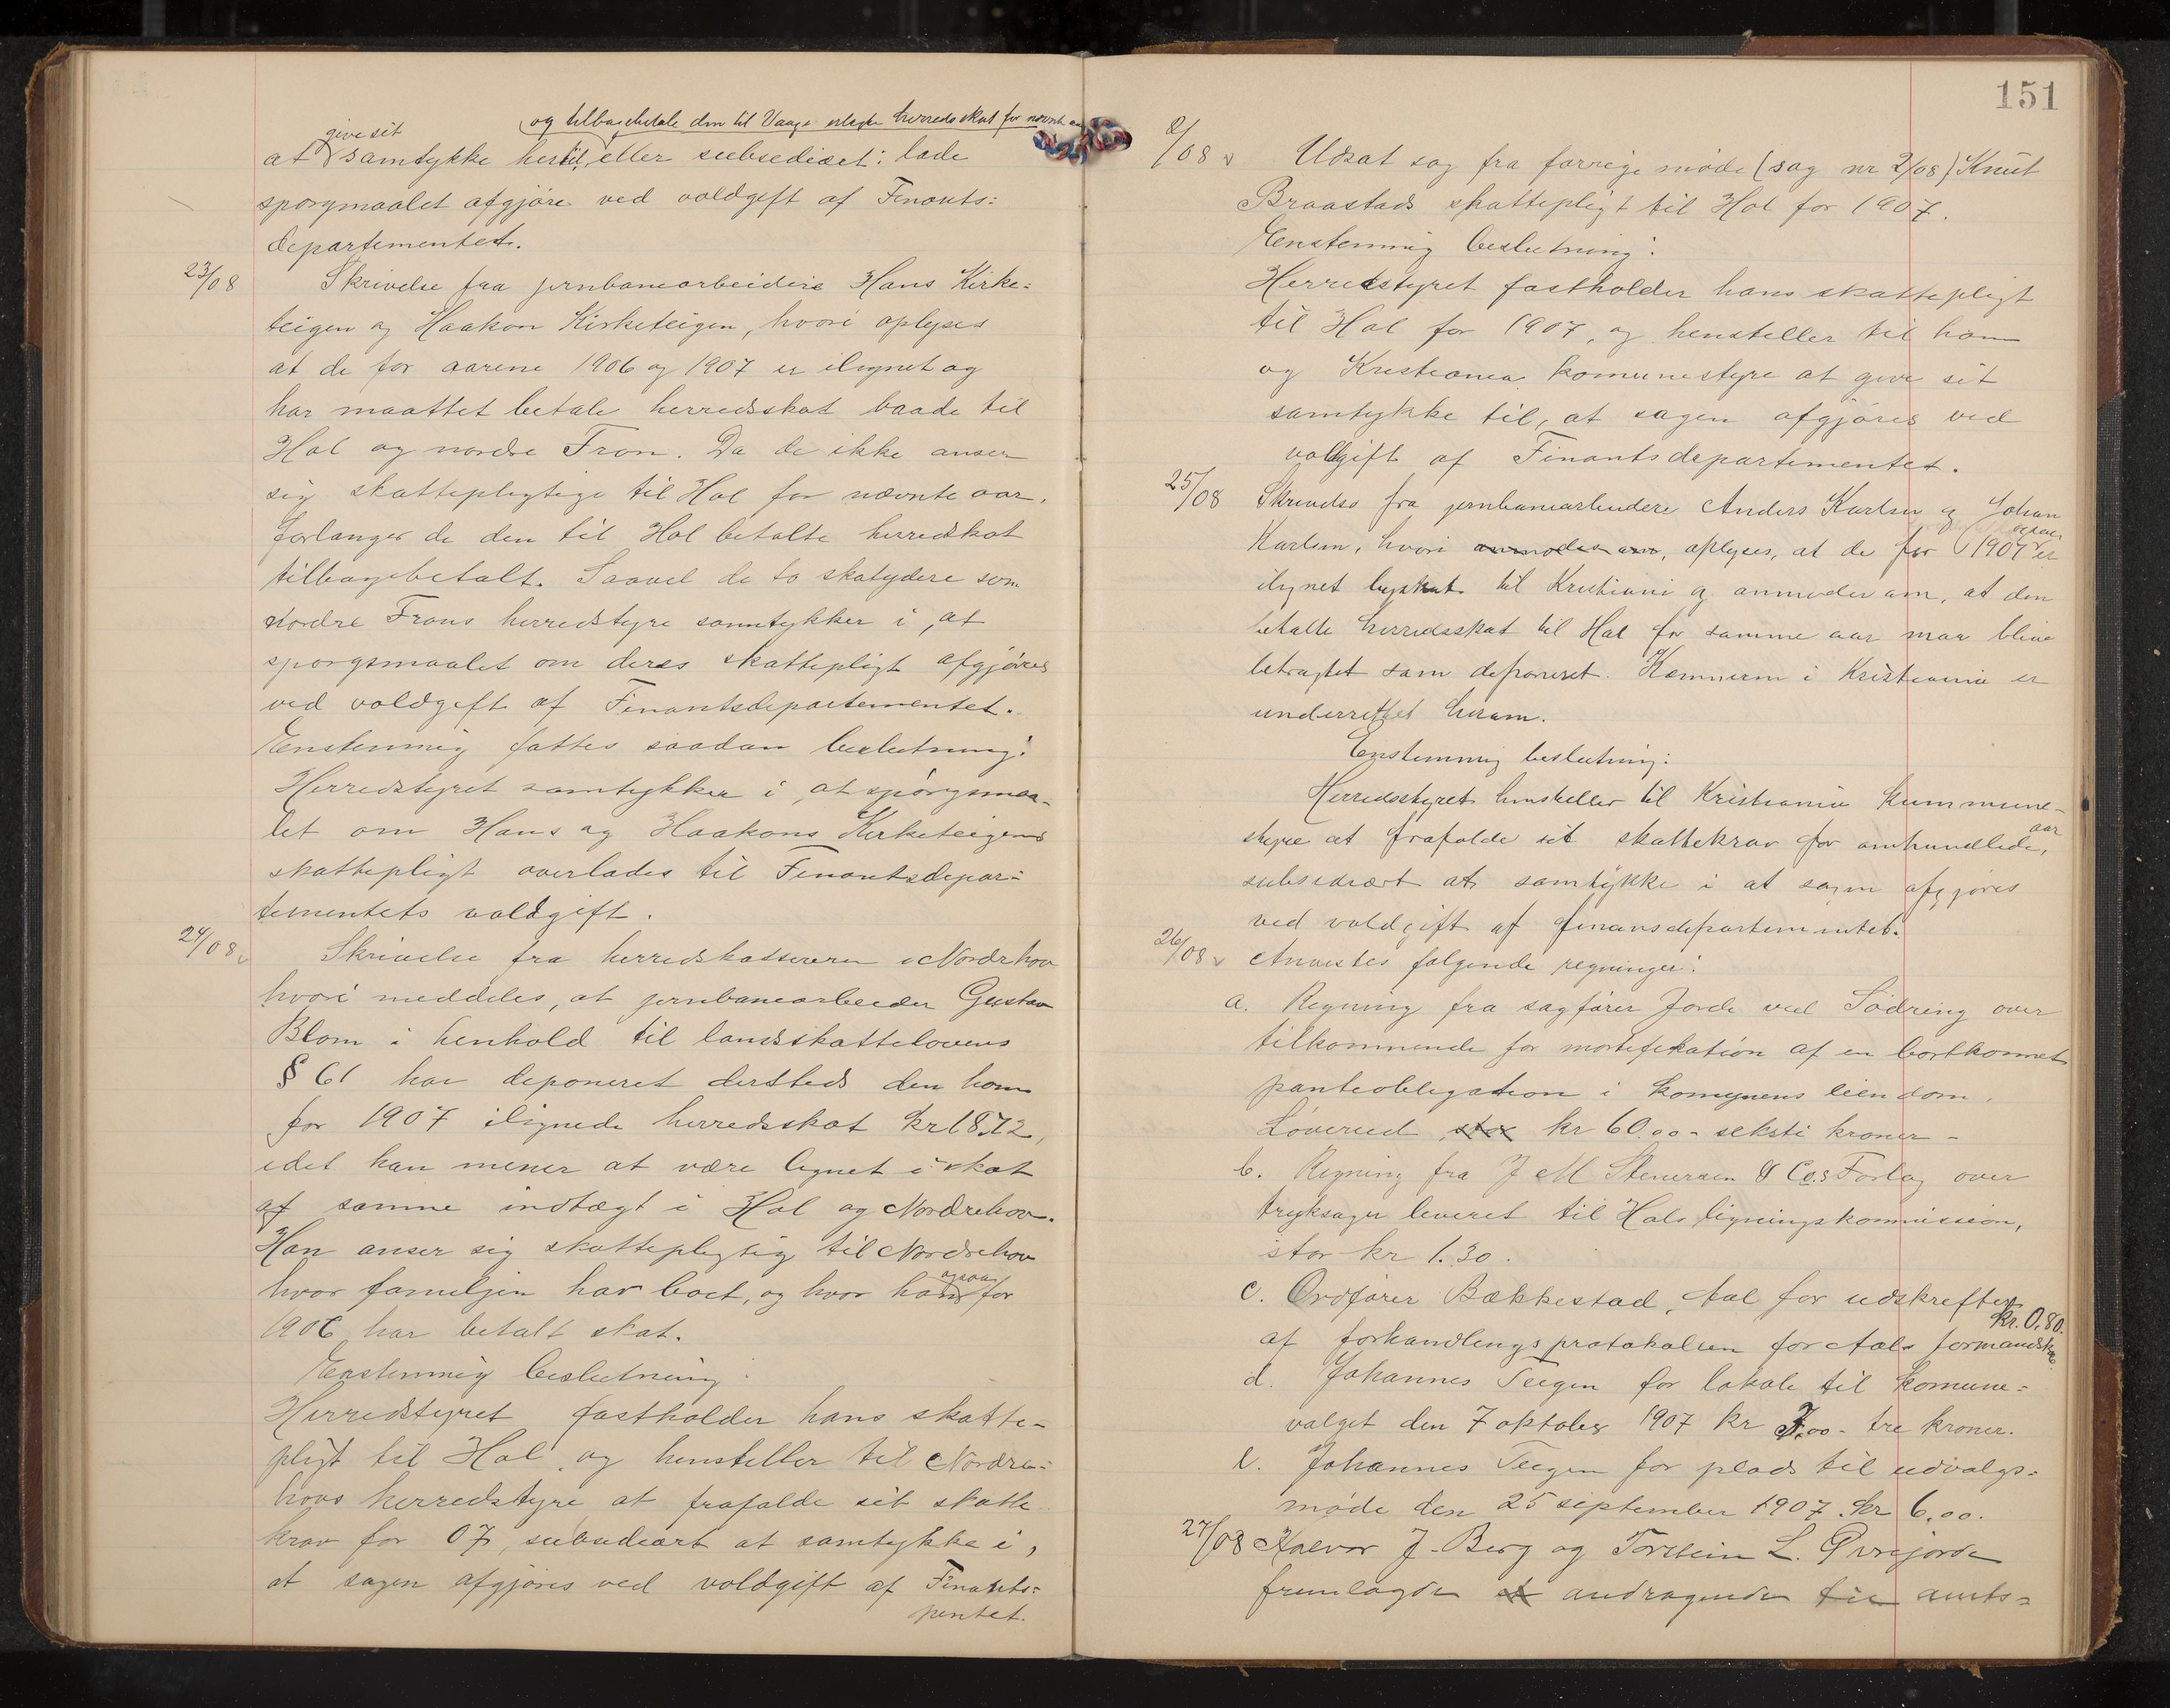 og tilbagebetale den til Vaage erlagte herredsskat for nævnte aar
give sit
at samtykke hertil, eller subsediært: lade
sporgmaalet afgjøre ved voldgift af Finants:
departementet.
23/08 Skrivelse fra jernbanearbeidere Hans Kirke:
teigen og Haakon Kirketeigen, hvori oplyses
at de for aarene 1906 og 1907 er ilignet og
har maattet betale herredsskat baade til
Hol og nordre Fron. Da de ikke anser
sig skattepligtige til Hol for nævnte aar,
forlanger de den til Hol betalte herredskat
tilbagebetalt. Saavel de to skatydere som
Nordre Frons herredstyre samtykker i, at
sporgsmaalet om deres skattepligt afgjøres
ved voldgift af Finantsdepartementet.
Enstemmig fattes saadan beslutning:
Herredstyret samtykker i, at spörgsmaa-
let om Hans og Haakons Kirketeigens
skattepligt overlades til Finantsdepar:
tementets voldgift.
24/08 Skrivelse fra herredskassereren i Nordrhov
hvori meddeles, at jernbanearbeider Gustav
Blom i henhold til landsskattelovens
§ 61 har deponeret dersteds den ham
for 1907 ilignede herredsskat kr 18.72,
idet han mener at være lignet i skat
af samme indtægt i Hol og Nordrehov.
Han anser sig skattepligtig til Nordrehov
hvor familjen har boet, og hvor han ogsaa for
1906 har betalt skat.
Enstemmig beslutning:
Herredstyret fastholder hans skatte-
pligt til Hol, og henstiller til Nordre:
hovs herredstyre at frafalde sit skatte
krav for 07, subsediært at samtykke i,
at sagen afgjøres ved voldgift af Finants:
pentet.
151
2/
/08 Udsat sag fra forrige møde (sag nr 2/08) Knut
Braastads skattepligt til Hol for 1907.
Enstemmig beslutning:
Herredstyret fastholder hans skattepligt
til Hol for 1907, og henstiller til ham
og Kristiania komunestyre at give sit
samtykke til, at sagen afgjøres ved
voldgift af Finantsdepartementet.
25/08 Skrivelse fra jernbanearbeidere Anders Karlsen og Johan
Karlsen, hvori anmodes om, oplyses, at de for 1907 ogsaa er
ilignet byskat til Kristiania og anmoder om, at den
betalte herredsskat til Hol for samme aar maa blive
betragtet som deponeret. Kæmneren i Kristiania er
underrettet herom.
Enstemmig beslutning:
Herredsstyret henstiller til Kristiania kummune-
styre at frafalde sit skattekrav for omhandlede aar,
subsediært at samtykke i at sagen afgjøres
ved voldgift af finansdepartementet.
26/08 Anvistes følgende regninger:
a. Regning fra sagfører Jorde ved Sødring over
tilkommende for mortifikation af en bortkommet
panteobligation i komunens eiendom,
Løverud, stor kr 60.00 - seksti kroner -
b. Regning fra J M Stenersen & Co.s Forlag over
tryksager leveret til Hols ligningskommission,
stor kr 1.30.
c. Ordfører Bækkestad, Aal for udskrefter
kr. 0,80.
af forhandlingsprotokollen for Aals formandskab
d. Johannes Teigen for lokale til komune=
valget den 7 oktober 1907 kr 3,00 - tre kroner.
e. Johannes Teigen for plads til udvalgs=
møde den 25 september 1907. kr 6,00.
27/08 Halvor J. Berg og Torstein L.
fremlagde et andragende til amts=